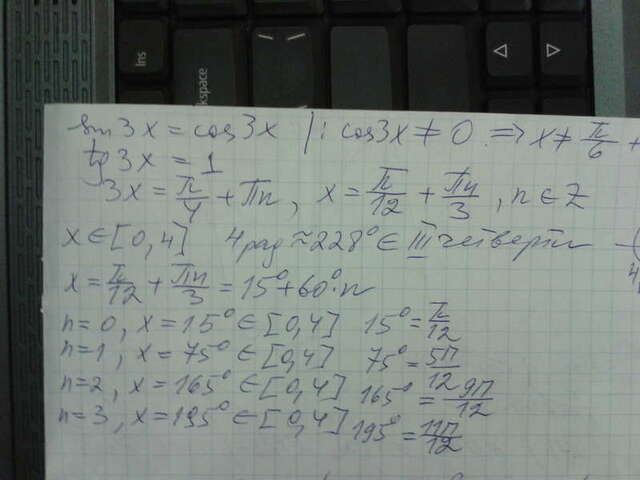 Ins
kspace
sin 3x = cos 3x |: cos3x ≠ 0. ⇒ x ≠ π/6 +
tg 3x = 1
3x = π/4 + πn, x = π/12 + πn/3, n ∈ Z
x ∈ [0,4] 4 рад ≈ 228° ∈ III четверти
x = π/12 + πn/3 = 15° + 60°·n
n = 0, x = 15° ∈ [0,4] 15° = π/12
n = 1, x = 75° ∈ [0,4] 75° = 5π/12
n = 2, x = 165° ∈ [0,4] 165° = 9π/12
n = 3, x = 195° ∈ [0,4] 195° = 11π/12